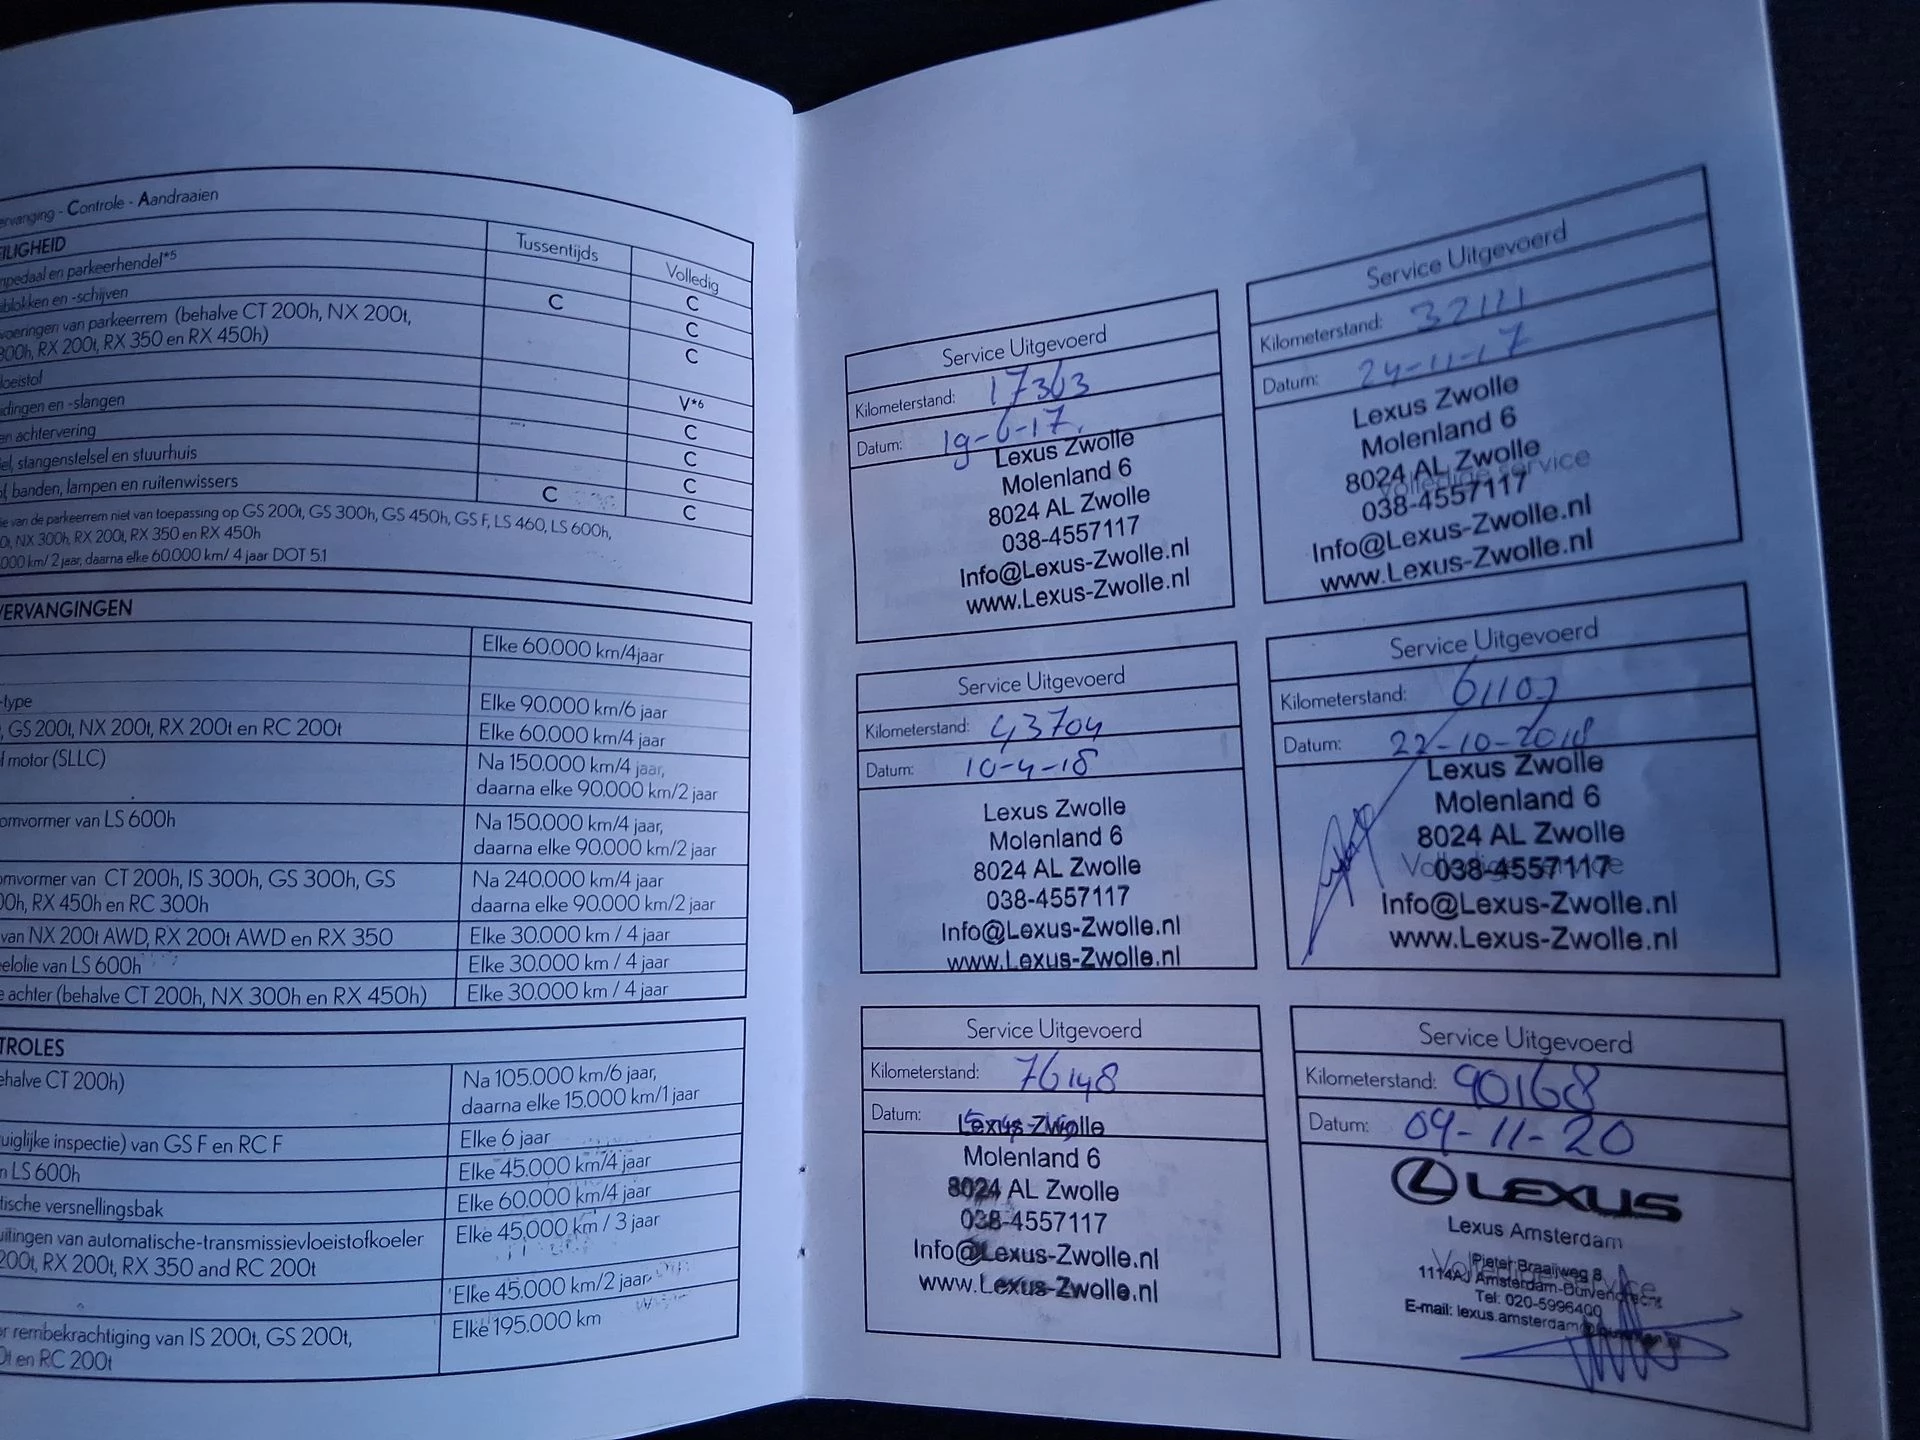 ervanging - Controle - Aandraaien
EILIGHEID
Tussentijds
Volledig
mpedaal en parkeerhendel*5
C
iblokken en -schijven
C
C
voeringen van parkeerrem (behalve CT 200h, NX 200t,
300h, RX 200t, RX 350 en RX 450h)
C
loeistof
V*6
idingen en -slangen
C
en achtervering
C
iel, stangenstelsel en stuurhuis
C
l, banden, lampen en ruitenwissers
C
C
ie van de parkeerrem niet van toepassing op GS 200t, GS 300h, GS 450h, GS F, LS 460, LS 600h,
0t, NX 300h, RX 200t, RX 350 en RX 450h
000 km/ 2 jaar, daarna elke 60.000 km/ 4 jaar DOT 5.1
VERVANGINGEN
Elke 60.000 km/4jaar
-type
Elke 90.000 km/6 jaar
, GS 200t, NX 200t, RX 200t en RC 200t
Elke 60.000 km/4 jaar
f motor (SLLC)
Na 150.000 km/4 jaar,
daarna elke 90.000 km/2 jaar
omvormer van LS 600h
Na 150.000 km/4 jaar,
daarna elke 90.000 km/2 jaar
omvormer van CT 200h, IS 300h, GS 300h, GS
00h, RX 450h en RC 300h
Na 240.000 km/4 jaar
daarna elke 90.000 km/2 jaar
van NX 200t AWD, RX 200t AWD en RX 350
Elke 30.000 km / 4 jaar
elolie van LS 600h
Elke 30.000 km / 4 jaar
e achter (behalve CT 200h, NX 300h en RX 450h)
Elke 30.000 km / 4 jaar
TROLES
ehalve CT 200h)
Na 105.000 km/6 jaar,
daarna elke 15.000 km/1 jaar
uiglijke inspectie) van GS F en RC F
Elke 6 jaar
n LS 600h
Elke 45.000 km/4 jaar
tische versnellingsbak
Elke 60.000 km/4 jaar
uitingen van automatische-transmissievloeistofkoeler
200t, RX 200t, RX 350 and RC 200t
Elke 45,000 km / 3 jaar
Elke 45.000 km/2 jaar
or rembekrachtiging van IS 200t, GS 200t,
0t en RC 200t
Elke 195.000 km
Service Uitgevoerd
Kilometerstand: 17363
Datum: 19-6-17.
Lexus Zwolle
Molenland 6
8024 AL Zwolle
038-4557117
Info@Lexus-Zwolle.nl
www.Lexus-Zwolle.nl
Service Uitgevoerd
Kilometerstand: 32111
Datum: 24-11-17
Lexus Zwolle
Molenland 6
8024 AL Zwolle
Volledige service
038-4557117
Info@Lexus-Zwolle.nl
www.Lexus-Zwolle.nl
Service Uitgevoerd
Kilometerstand: 43704
Datum: 10-4-18
Lexus Zwolle
Molenland 6
8024 AL Zwolle
038-4557117
Info@Lexus-Zwolle.nl
www.Lexus-Zwolle.nl
Service Uitgevoerd
Kilometerstand: 61107
Datum: 22-10-2018
Lexus Zwolle
Molenland 6
8024 AL Zwolle
038-4557117
Info@Lexus-Zwolle.nl
www.Lexus-Zwolle.nl
Service Uitgevoerd
Kilometerstand: 76148
Datum:
Lexus Zwolle
Molenland 6
8024 AL Zwolle
038-4557117
Info@Lexus-Zwolle.nl
www.Lexus-Zwolle.nl
Service Uitgevoerd
Kilometerstand: 90168
Datum: 09-11-20
LEXUS
Lexus Amsterdam
Pieter Braaijweg 8
1114AJ Amsterdam-Duivendrecht
Tel: 020-5996400
E-mail: lexus.amsterdam@